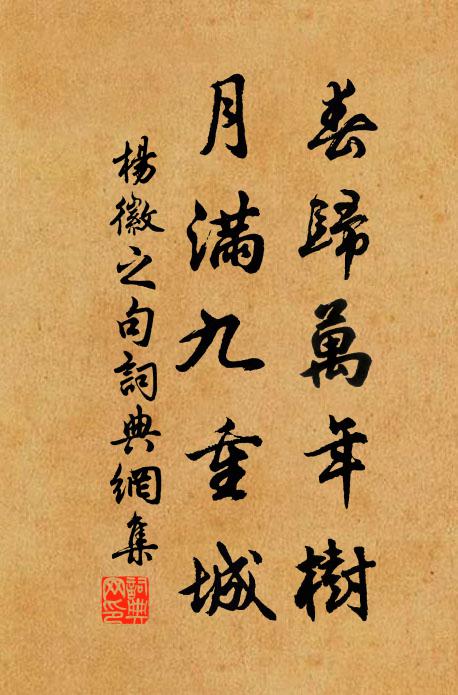 春歸萬年樹
月滿九重城
楊徽之句詞典網集
詞典
网印